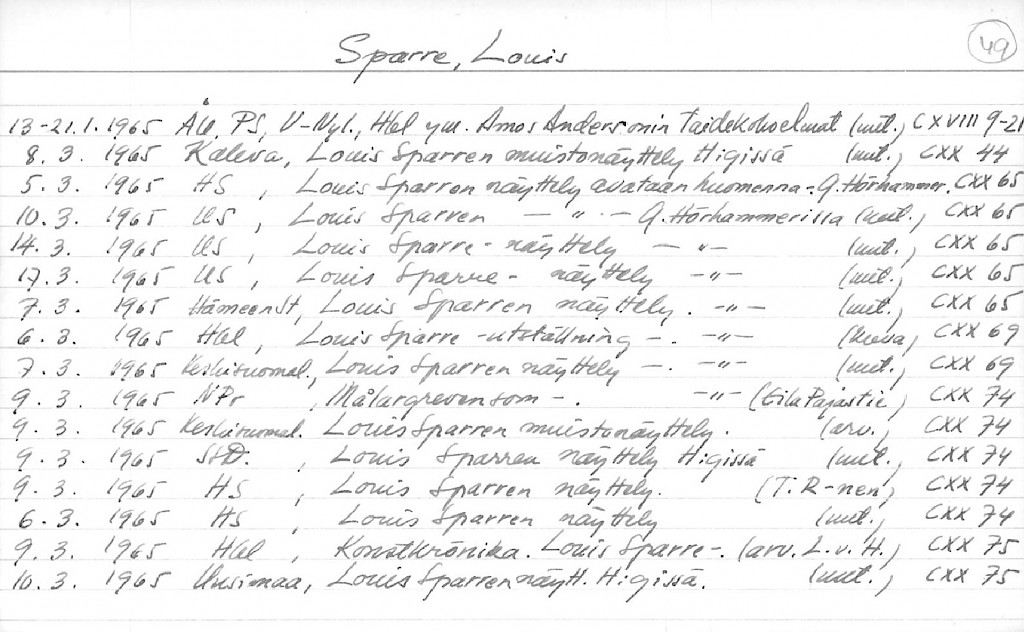 49
Sparre, Louis
13-21.1.1965 ÅU, PS, V-Nyl., Hbl ym. Amos Andersonin taidekokoelmat (uut.) CXVIII 9-21
8. 3. 1965 Kaleva, Louis Sparren muistonäyttely H:gissä (uut.) CXX 44
5. 3. 1965 HS , Louis Sparren näyttely avataan huomenna - G. Hörhammer. CXX 65
10. 3. 1965 US , Louis Sparren — " — G. Hörhammerissa (uut.) CXX 65
14. 3. 1965 US , Louis Sparre - näyttely — " — (uut.) CXX 65
17. 3. 1965 US , Louis Sparre - näyttely — " — (uut.) CXX 65
7. 3. 1965 HämeenSt, Louis Sparren näyttely. — " — (uut.) CXX 65
6. 3. 1965 Hbl , Louis Sparre -utställning -. — " — (kuva) CXX 69
7. 3. 1965 Keskisuomal., Louis Sparren näyttely -. — " — (uut.) CXX 69
9. 3. 1965 NPr , Målargreven som -. — " — (Eila Pajastie) CXX 74
9. 3. 1965 Keskisuomal. Louis Sparren muistonäyttely. (arv.) CXX 74
9. 3. 1965 SSD. , Louis Sparren näyttely H:gissä (uut.) CXX 74
9. 3. 1965 HS , Louis Sparren näyttely. (T. R-nen) CXX 74
6. 3. 1965 HS , Louis Sparren näyttely (uut.) CXX 74
9. 3. 1965 Hbl , Konstkrönika. Louis Sparre -. (arv. L. v. H.) CXX 75
10. 3. 1965 Uusimaa, Louis Sparren näytt. H:gissä. (uut.) CXX 75